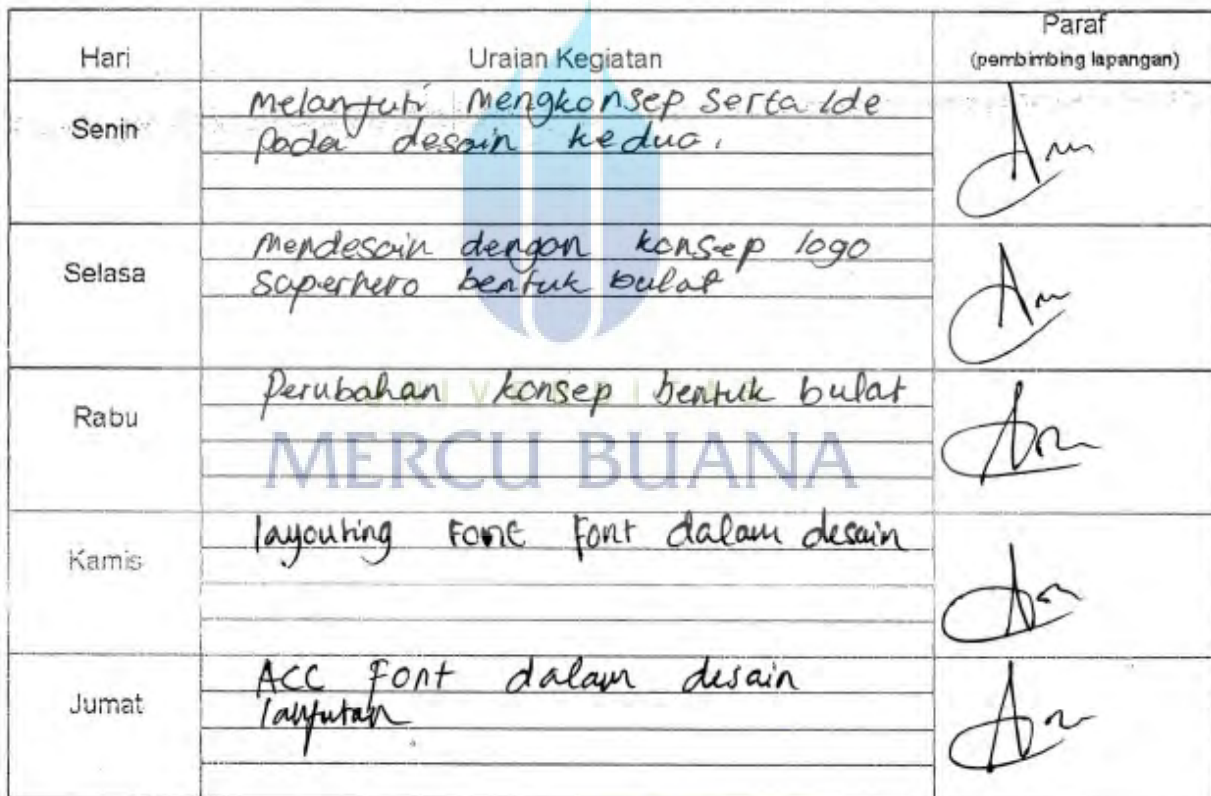 Hari Uraian Kegiatan Paraf
(pembimbing lapangan)
Senin melanjuti mengkonsep serta ide
pada desain kedua.
Selasa mendesain dengan konsep logo
superhero bentuk bulat
Rabu Perubahan konsep bentuk bulat
MERCU BUANA
Kamis layouting Font Font dalam desain
Jumat ACC Font dalam desain
lanjutan